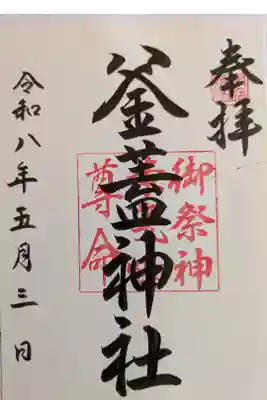 奉拝
釜蓋神社
御祭神
尊命
令和八年五月三日